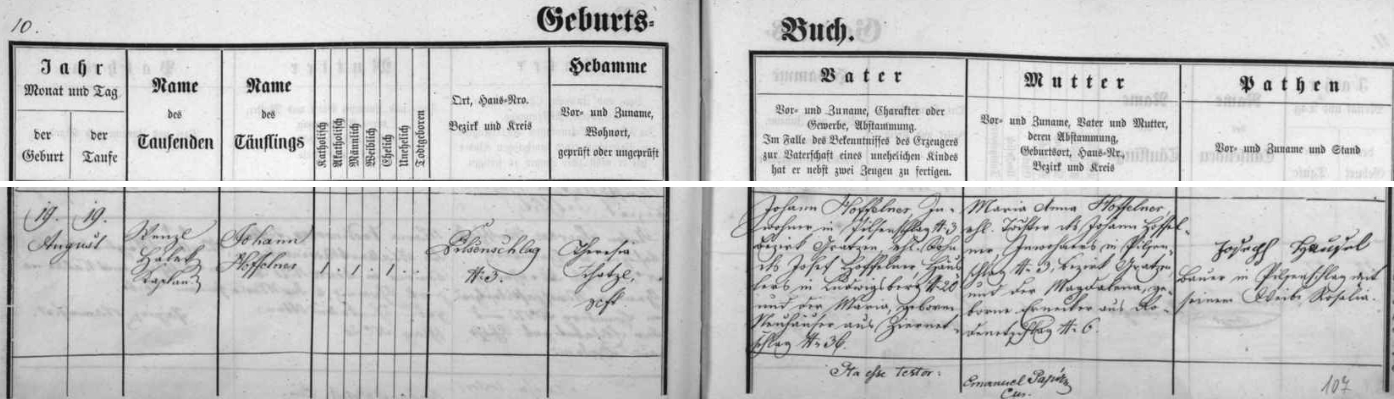 10.
Geburts-
Buch.
Jahr
Monat und Tag
der Geburt
der Taufe
Name
des
Taufenden
Name
des
Täuflings
Katholisch
Akatholisch
Männlich
Weiblich
Ehelich
Unehelich
Todtgeboren
Ort, Haus-Nro.
Bezirk und Kreis
Hebamme
Vor- und Zuname,
Wohnort,
geprüft oder ungeprüft
Vater
Vor- und Zuname, Charakter oder
Gewerbe, Abstammung.
Im Falle des Bekenntnisses des Erzeugers
zur Vaterschaft eines unehelichen Kindes
hat er nebst zwei Zeugen zu fertigen.
Mutter
Vor- und Zuname, Vater und Mutter,
deren Abstammung,
Geburtsort, Haus-Nr.
Bezirk und Kreis
Pathen
Vor- und Zuname und Stand
19. 19.
August
Kaplan
Johann
Hoffelner
1 . 1 . 1 . .
N. 3.
Theresia
gpft
Johann Hoffelner In-
wohner in Pilsenschlag N. 3
Bezirk Gratzen, ehl. Sohn
des Josef Hoffelner, Häus-
lers in Ludwigsberg N. 20
und der Maria, geborne
Neuhauser aus
schlag N. 36.
Maria Anna Hoffelner,
ehl. Tochter des Johann Hoffel-
ner Inwohners in Pilsen-
schlag N. 3, Bezirk Gratzen
und der Magdalena, ge-
borne aus
schlag N. 6.
Joseph
Bauer in Pilsenschlag mit
seinem Weibe Rosalia.
Ita esse testor:
Emanuel
Cur.
107